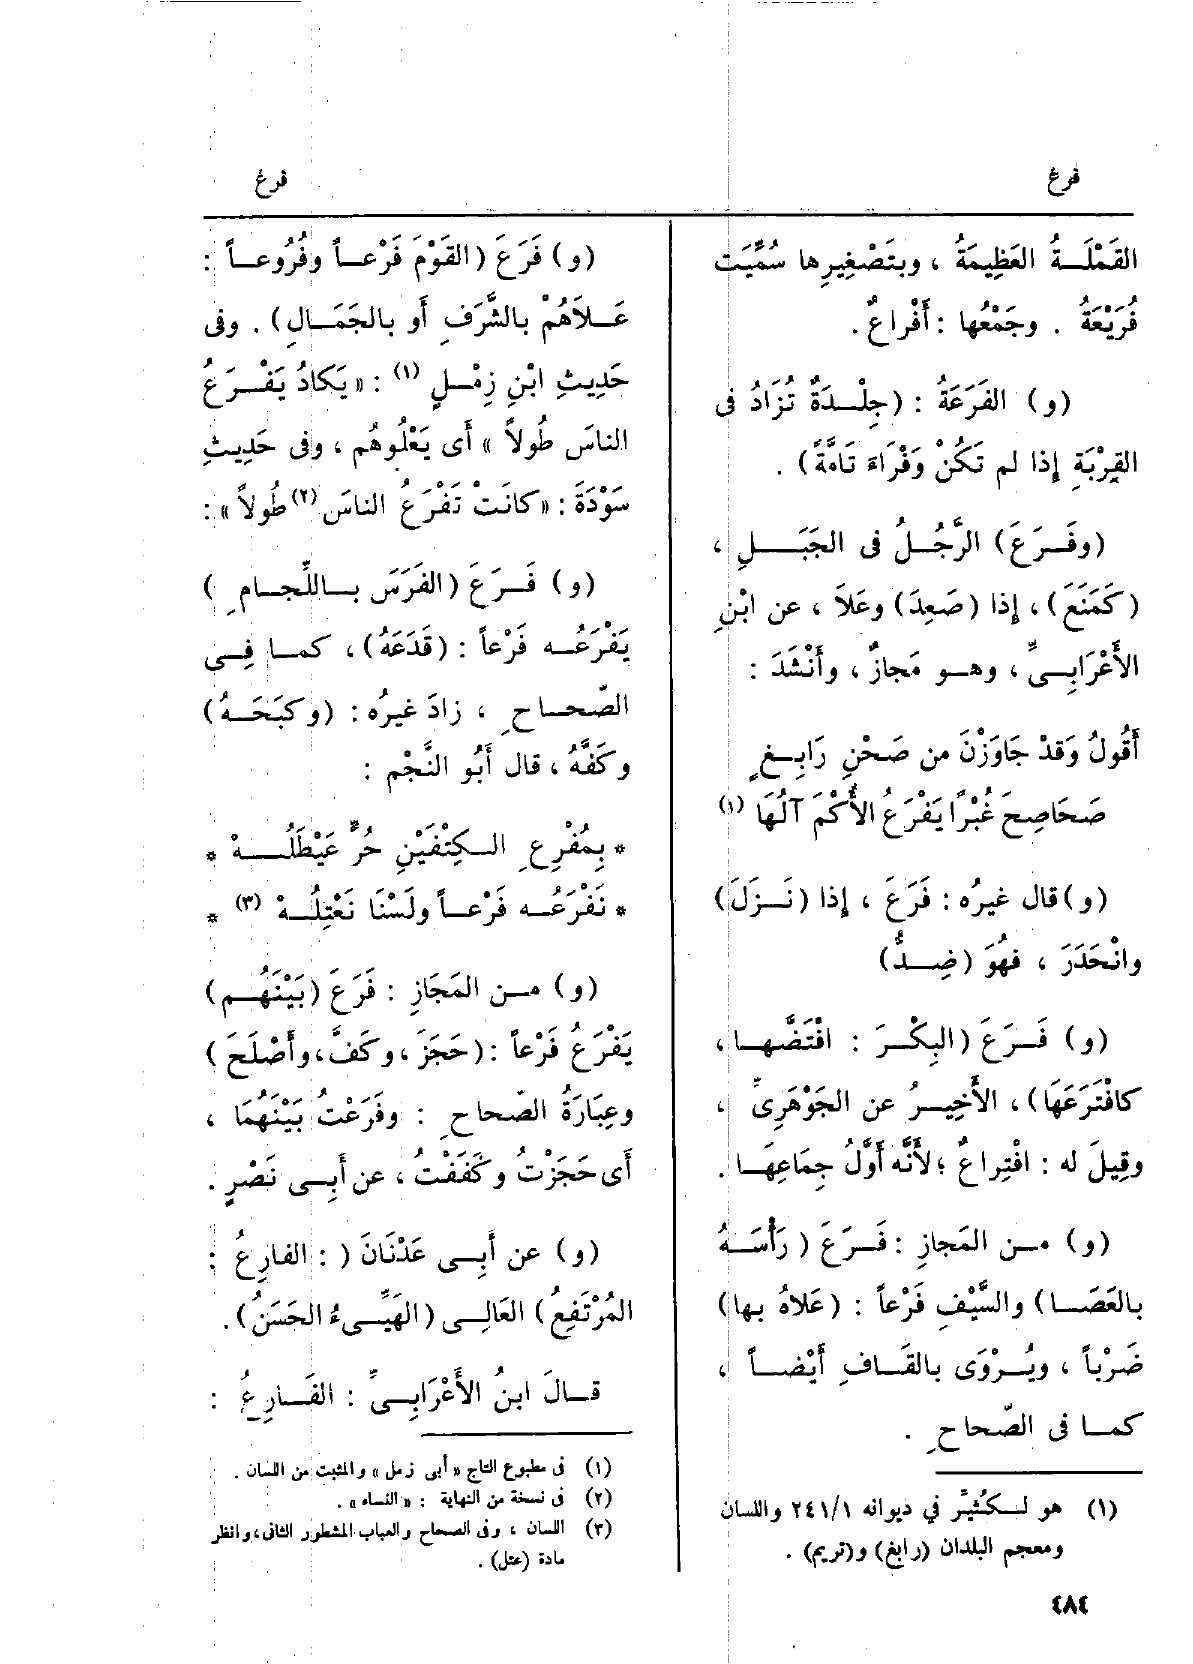 فرغ
فرغ
القَمْلَةُ العَظِيمَةُ ، وبتَصْغِيرِها سُمِّيَت
فُرَيْعَةُ . وجَمْعُها : أَفْراعٌ .
(و) الفَرَعَةُ : (جِلْدَةٌ تُزَادُ فى
القِرْبَةِ إذا لم تَكُنْ وَفْرَاءَ تَامَّةً) .
(وفَرَعَ) الرَّجُلُ فى الجَبَلِ ،
(كَمَنَعَ) ، إذا (صَعِدَ) وعَلاَ ، عن ابْنِ
الأَعْرَابِىِّ ، وهو مَجازٌ ، وأَنْشَدَ :
أَقُولُ وَقدْ جَاوَزْنَ من صَحْنِ رَابِغٍ
صَحَاصِحَ غُبْرًا يَفْرَعُ الأُكْمَ آلُهَا (١)
(و) قال غيرُه : فَرَعَ ، إذا (نَزَلَ)
وانْحَدَرَ ، فهُوَ (ضِدٌّ)
(و) فَرَعَ (البِكْرَ : افْتَضَّها ،
كافْتَرَعَهَا) ، الأَخِيرُ عن الجَوْهَرِىِّ ،
وقِيلَ له : افْتِراعٌ ؛ لأَنَّه أَوَّلُ جِمَاعِهَا .
(و) من المَجازِ : فَرَعَ ( رَأْسَهُ
بالعَصَا) والسَّيْفِ فَرْعاً : (عَلاهُ بها)
ضَرْباً ، ويُرْوَى بالقَافِ أَيْضاً ،
كما فى الصّحاحِ .
(١) هو لكُثيِّر في ديوانه ٢٤١/١ واللسان
ومعجم البلدان (رابغ) و(تريم) .
(و) فَرَعَ (القَوْمَ فَرْعاً وفُرُوعاً :
عَلاَهُمْ بالشَّرَفِ أو بالجَمَالِ) . وفى
حَدِيثِ ابْنِ زِمْلٍ (١) : «يَكادُ يَفْرَعُ
الناسَ طُولاً » أى يَعْلُوهُم ، وفى حَدِيثِ
سَوْدَةَ : «كانَتْ تَفْرَعُ الناسَ (٢) طُولاً » :
(و) فَرَعَ (الفَرَسَ باللِّجامِ )
يَفْرَعُه فَرْعاً : (قَدَعَهُ) ، كما فِى
الصّحاحِ ، زادَ غيرُه : (وكبَحَهُ)
وكَفَّهُ ، قال أَبُو النَّجْم :
* بِمُفْرِعِ الكِتْفَيْنِ حُرٍّ عَيْطَلُهْ *
* نَفْرَعُه فَرْعاً ولَسْنَا نَعْتِلُهْ (٣) *
(و) من المَجَازِ : فَرَعَ (بَيْنَهُم)
يَفْرَعُ فَرْعاً : (حَجَزَ ، وكَفَّ ، وأَصْلَحَ )
وعِبَارَةُ الصّحاحِ : وفَرَعْتُ بَيْنَهُمَا ،
أَى حَجَزْتُ وكَفَفْتُ ، عن أَبِى نَصْرٍ .
(و) عن أَبِى عَدْنَانَ ( : الفارِعُ :
المُرْتَفِعُ) العَالِى (الهَيِّىءُ الحَسَنُ) .
قالَ ابنُ الأَعْرَابِىِّ : الفَارِعُ :
(١) فى مطبوع التاج «أبى زمل» والمثبت من اللسان .
(٢) فى نسخة من النهاية : « النساء » .
(٣) اللسان ، وفى الصحاح والعباب المشطور الثانى ، وانظر
مادة (عتل) .
٤٨٤